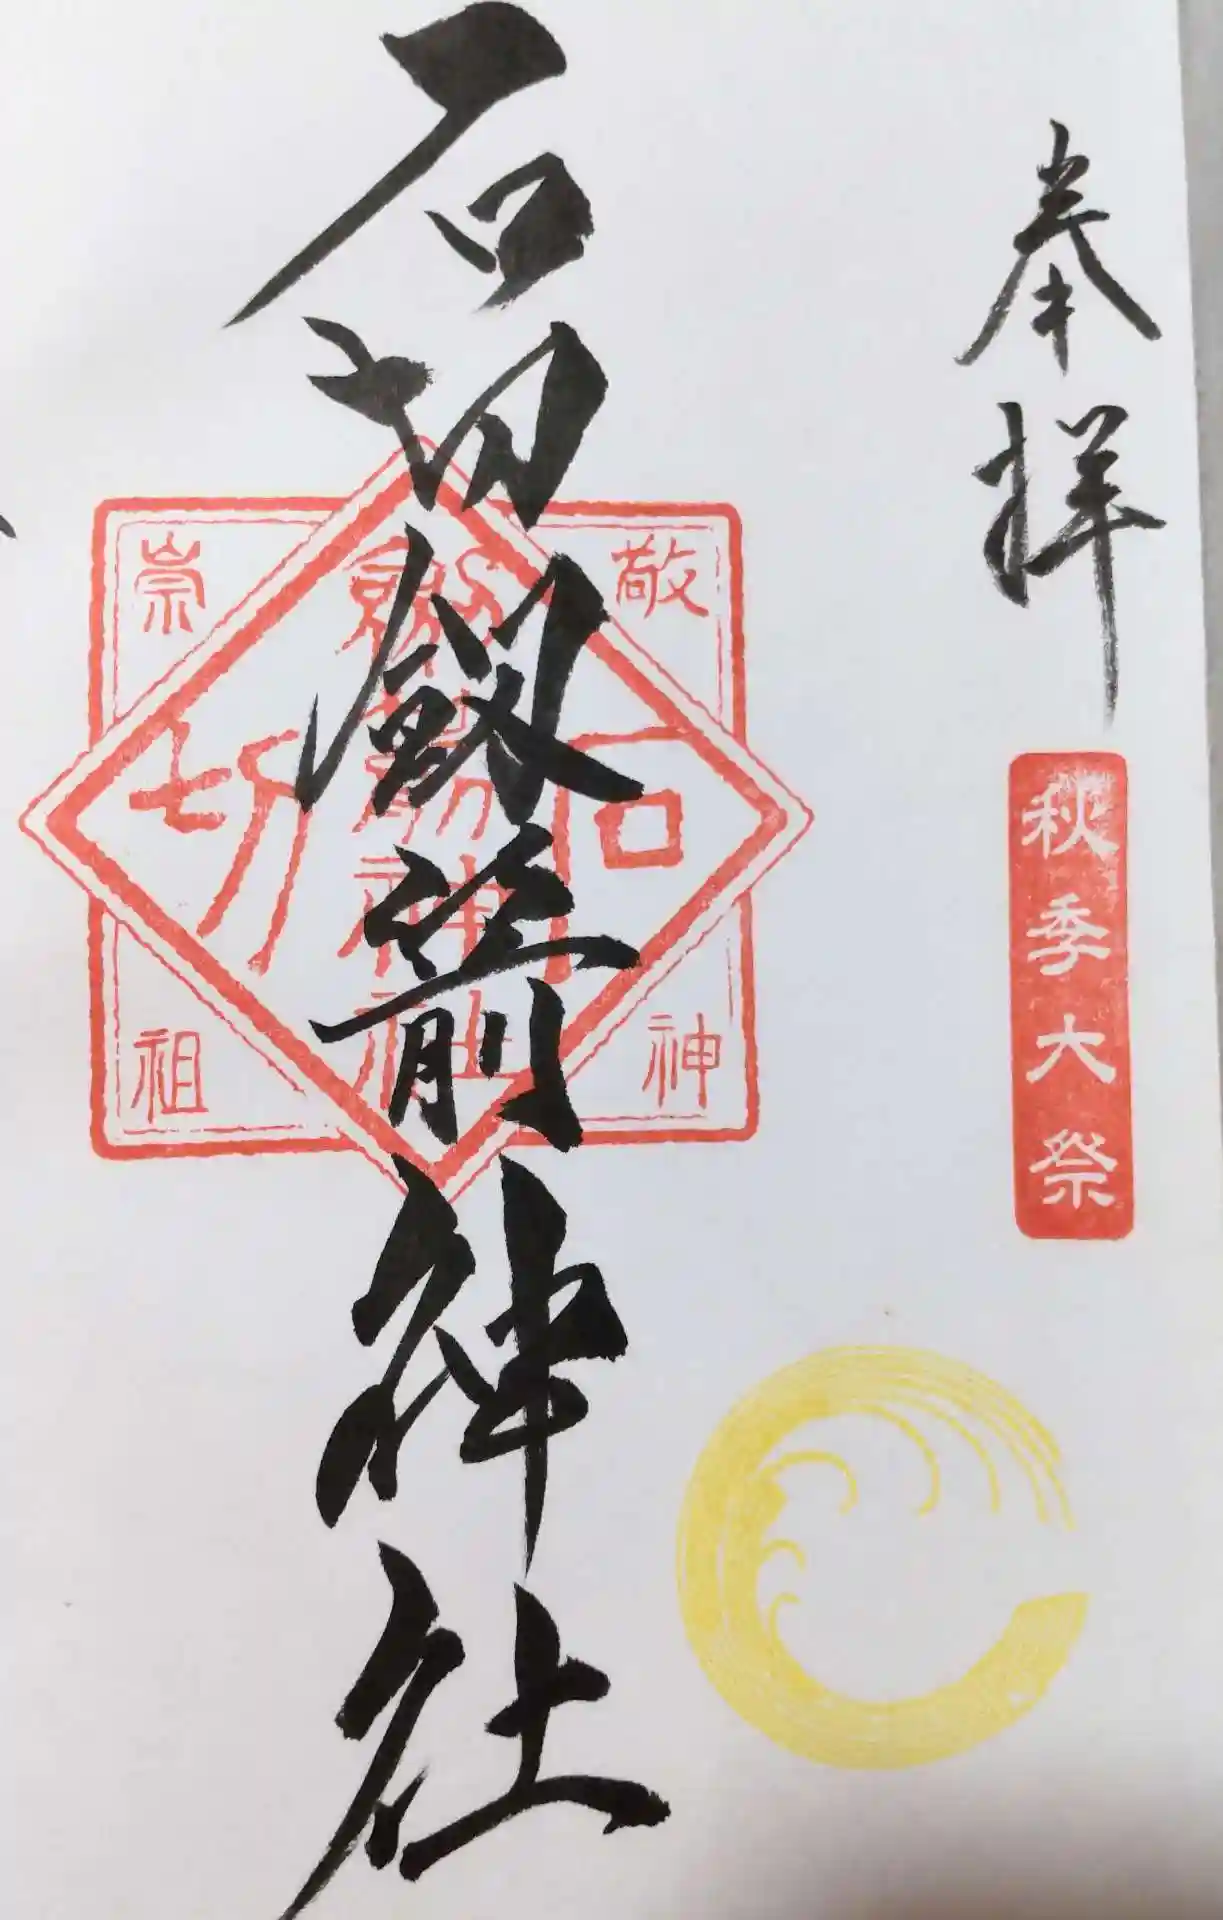 奉拝
秋季大祭
石切劔箭神社
敬神
崇祖
石切
劔箭神社